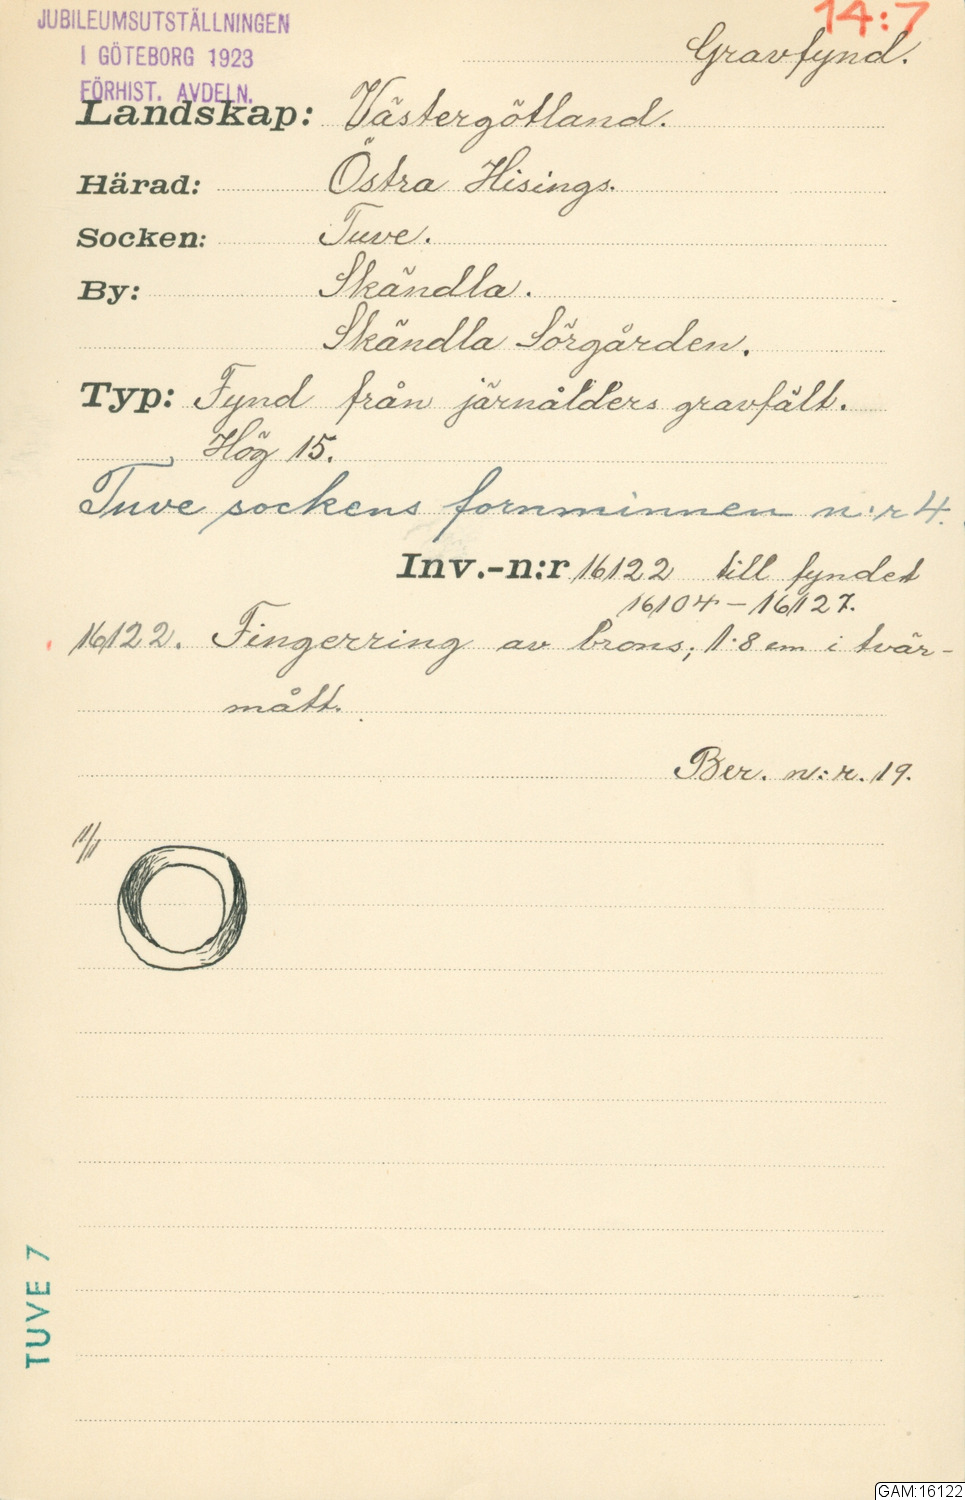 JUBILEUMSUTSTÄLLNINGEN
I GÖTEBORG 1923
FÖRHIST. AVDELN.
14:7
Gravfynd.
Landskap: Västergötland.
Härad: Östra Hisings.
Socken: Tuve.
By: Skändla.
Skändla Sörgården.
Typ: Fynd från järnålders gravfält.
Hög 15.
Tuve sockens fornminnen n:r 4.
Inv.-n:r 16122 till fyndet
16104-16127.
16122. Fingerring av brons; 1.8 cm i tvär-
mått.
Ber. n:r. 19.
1/1
TUVE 7
GAM:16122